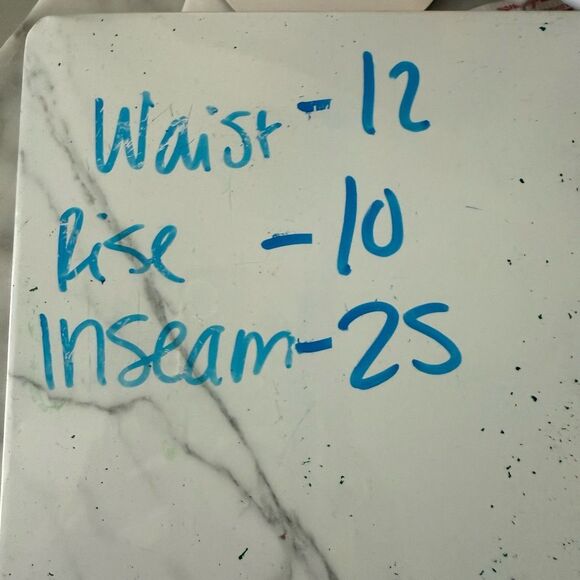 Waist - 12
Rise - 10
Inseam - 25